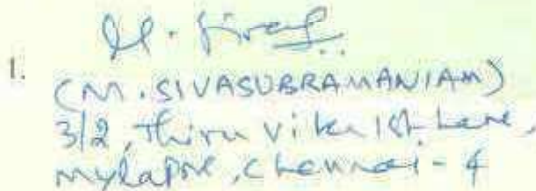 1.
(M. SIVASUBRAMANIAM)
3/2, Thiru vi ka 1st Lane,
Mylapore, Chennai - 4